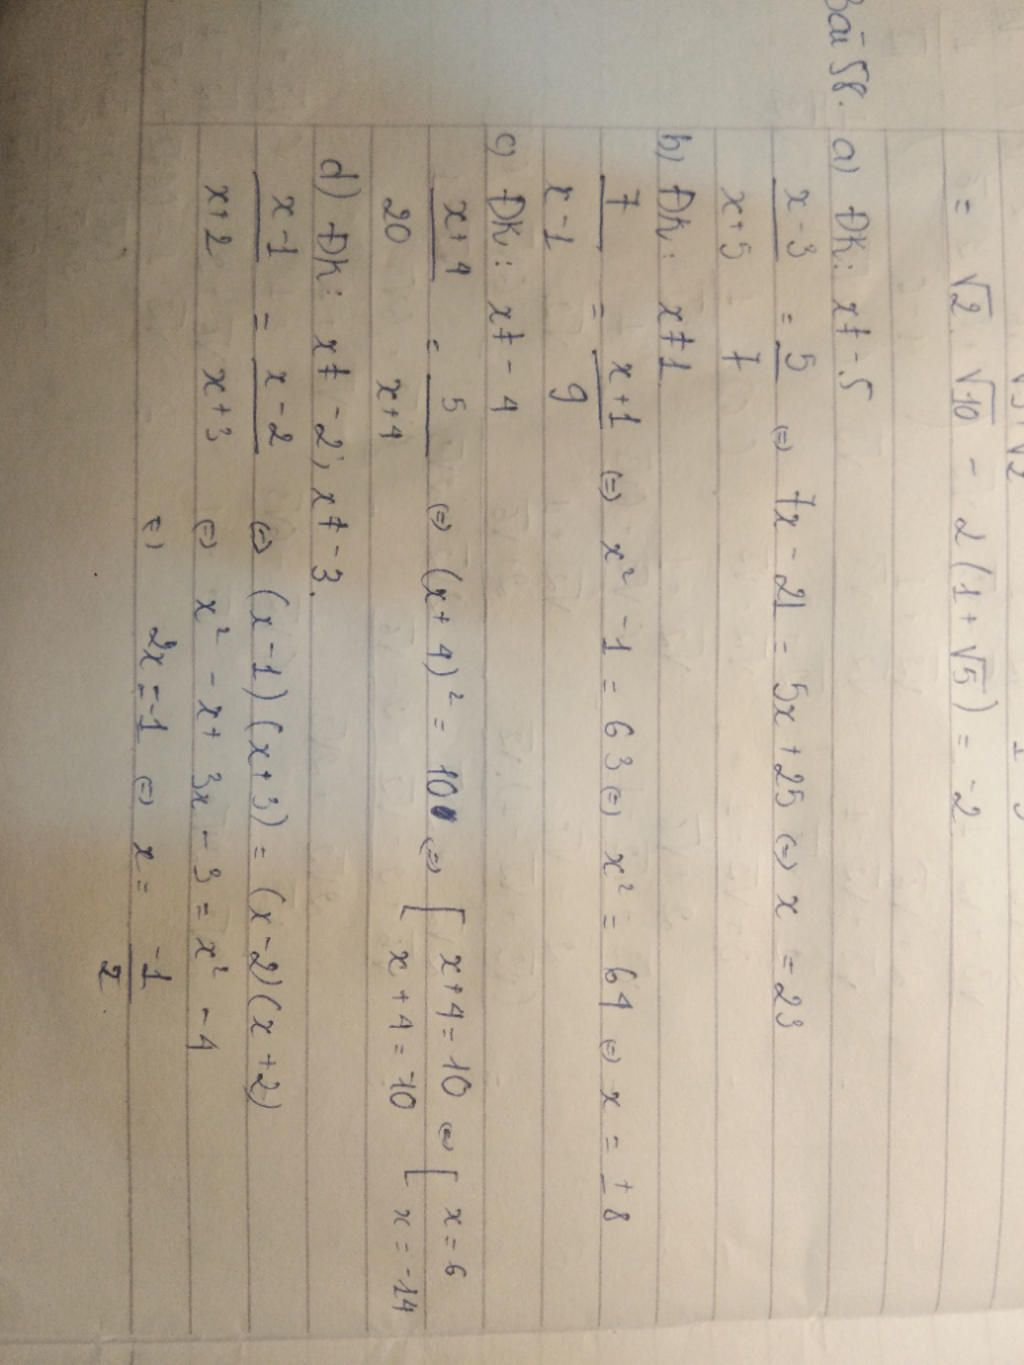 = √2 . √10 - 2(1+√5) = -2
Bài 58. a) ĐK: x ≠ -5
x-3/x+5 = 5/7 ⇔ 7x - 21 = 5x + 25 ⇔ x = 23
b) ĐK: x ≠ 1
7/x-1 = x+1/9 ⇔ x² - 1 = 63 ⇔ x² = 64 ⇔ x = ±8
c) ĐK: x ≠ -4
x+4/20 = 5/x+4 ⇔ (x+4)² = 100 ⇔ [ x+4 = 10 ⇔ [ x = 6
x+4 = -10 x = -14
d) ĐK: x ≠ -2; x ≠ -3.
x-1/x+2 = x-2/x+3 ⇔ (x-1)(x+3) = (x-2)(x+2)
⇔ x² - x + 3x - 3 = x² - 4
⇔ 2x = -1 ⇔ x = -1/2